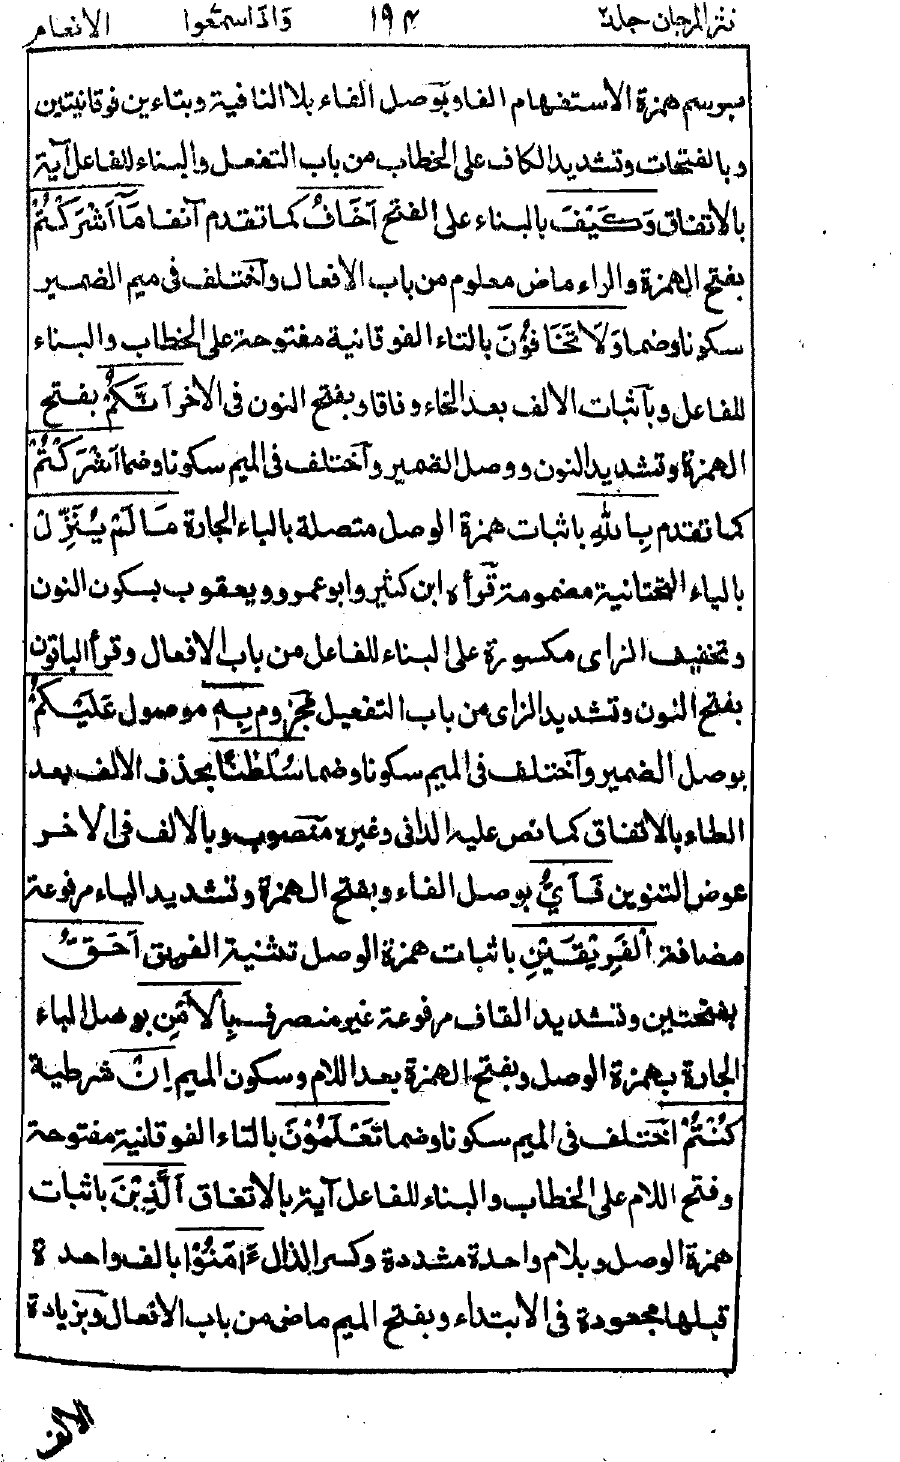 نثر المرجان جلد٢ ١٩٤ واذا سمعوا الانعام
برسم همزة الاستفهام الفا وبوصل الفاء بلا النافية وبتاءين فوقانيتين
وبالفتحات وتشديد الكاف على الخطاب من باب التفعل والبناء للفاعل آية
بالاتفاق وَكَيْفَ بالبناء على الفتح اَخَافُ كما تقدم آنفا مَآ اَشْرَكْتُمْ
بفتح الهمزة والراء ماض معلوم من باب الافعال واختلف فى ميم الضمير
سكونا وضما وَلَا تَخَافُوْنَ بالتاء الفوقانية مفتوحة على الخطاب والبناء
للفاعل وباثبات الالف بعد الخاء وفاقا وبفتح النون فى الآخر اَنَّكُمْ بفتح
الهمزة وتشديد النون ووصل الضمير واختلف فى الميم سكونا وضما اَشْرَكْتُمْ
كما تقدم بِاللهِ باثبات همزة الوصل متصلة بالباء الجارة مَا لَمْ يُنَزِّلْ
بالياء التحتانية مضمومة قرأه ابن كثير وابو عمرو ويعقوب بسكون النون
وتخفيف الزاى مكسورة على البناء للفاعل من باب الافعال وقرأ الباقون
بفتح النون وتشديد الزاى من باب التفعيل مجزوم بِهٖ موصول عَلَيْكُمْ
بوصل الضمير واختلف فى الميم سكونا وضما سُلْطٰنًا بحذف الالف بعد
الطاء بالاتفاق كما نص عليه الدانى وغيره منصوب وبالالف فى الاخر
عوض التنوين فَاَيُّ بوصل الفاء وبفتح الهمزة وتشديد الياء مرفوعة
مضافة الْفَرِيْقَيْنِ باثبات همزة الوصل تثنية الفريق اَحَقُّ
بفتحتين وتشديد القاف مرفوعة غير منصرف بِالْاَمْنِ بوصل الباء
الجارة بهمزة الوصل وبفتح الهمزة بعد اللام وسكون الميم اِنْ شرطية
كُنْتُمْ اختلف فى الميم سكونا وضما تَعْلَمُوْنَ بالتاء الفوقانية مفتوحة
وفتح اللام على الخطاب والبناء للفاعل آية بالاتفاق اَلَّذِيْنَ باثبات
همزة الوصل وبلام واحدة مشددة وكسر الذال ءَامَنُوْا بالف واحدة
قبلها مجعودة فى الابتداء وبفتح الميم ماض من باب الافعال وبزيادة
الالف